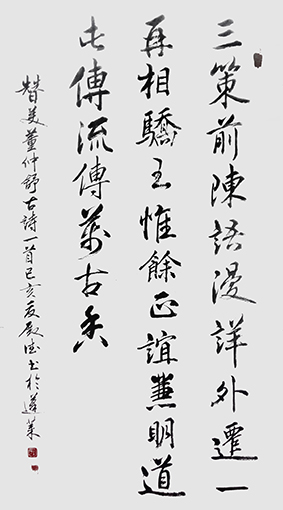 三策前陳語漫詳外遷一
再相驕王惟餘正誼兼明道
此傳流傳萬古香
贊美董仲舒古詩一首己亥夏书於蓬萊